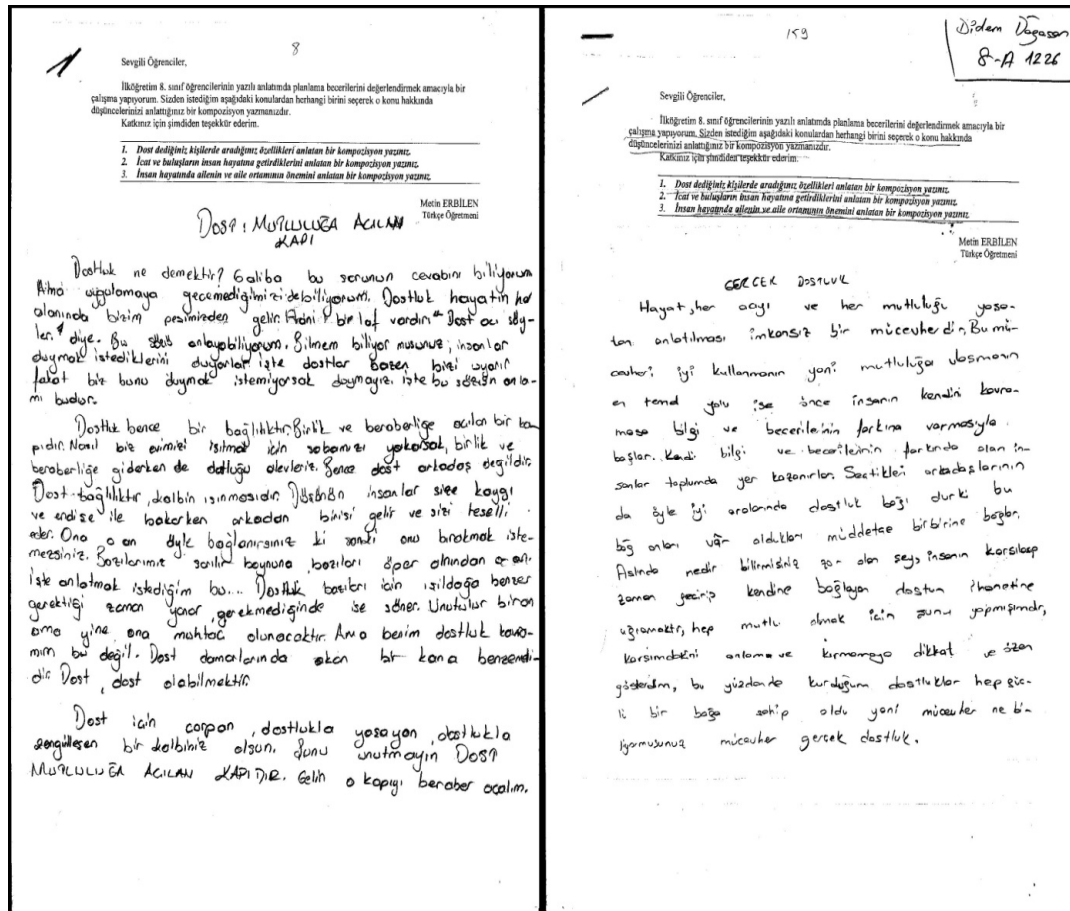 8
Sevgili Öğrenciler,
İlköğretim 8. sınıf öğrencilerinin yazılı anlatımda planlama becerilerini değerlendirmek amacıyla bir
çalışma yapıyorum. Sizden istediğim aşağıdaki konulardan herhangi birini seçerek o konu hakkında
düşüncelerinizi anlattığınız bir kompozisyon yazmanızdır.
Katkınız için şimdiden teşekkür ederim.
1. Dost dediğiniz kişilerde aradığınız özellikleri anlatan bir kompozisyon yazınız.
2. İcat ve buluşların insan hayatına getirdiklerini anlatan bir kompozisyon yazınız.
3. İnsan hayatında ailenin ve aile ortamının önemini anlatan bir kompozisyon yazınız.
Metin ERBİLEN
Türkçe Öğretmeni
DOST: MUTLULUĞA AÇILAN
KAPI
Dostluk ne demektir? Galiba bu sorunun cevabını biliyorum
Ama uygulamaya geçemediğimizi de biliyorum. Dostluk hayatın her
alanında bizim peşimizden gelir. Hani bir laf vardır "Dost acı söy-
ler." diye. Bu sözü anlayabiliyorum. Bilmem biliyor musunuz; insanlar
duymak istediklerini duyarlar işte dostlar bazen bizi uyarır
fakat biz bunu duymak istemiyorsak duymayız işte bu sözün anla-
mı budur.
Dostluk bence bir bağlılıktır. Birlik ve beraberliğe açılan bir ka-
pıdır. Nasıl biz evimizi ısıtmak için sobamızı yakarsak, birlik ve
beraberliğe giderken de dostluğu alevleriz. Bence dost arkadaş değildir.
Dost bağlılıktır, kalbin ısınmasıdır. Düşünün insanlar size kaygı
ve endişe ile bakarken arkadan birisi gelir ve sizi teselli
eder. Ona o an öyle bağlanırsınız ki sanki onu bırakmak iste-
mezsiniz. Bazılarımız sarılır boynuna bazıları öper alnından
işte anlatmak istediğim bu... Dostluk bazıları için ışıldağa benzer
gerektiği zaman yanar, gerekmediğinde ise söner. Unutulur biran
ama yine ona muhtaç olunacaktır. Ama benim dostluk kavra-
mım bu değil. Dost damarlarında akan bir kana
Dost, dost olabilmektir.
Dost için çarpan, dostlukla yaşayan, dostlukla
zengilleşen bir kalbiniz olsun. Şunu unutmayın DOST
MUTLULUĞA AÇILAN KAPIDIR. Gelin o kapıyı beraber açalım.
159
Didem
8-A 1226
Sevgili Öğrenciler,
İlköğretim 8. sınıf öğrencilerinin yazılı anlatımda planlama becerilerini değerlendirmek amacıyla bir
çalışma yapıyorum. Sizden istediğim aşağıdaki konulardan herhangi birini seçerek o konu hakkında
düşüncelerinizi anlattığınız bir kompozisyon yazmanızdır.
Katkınız için şimdiden teşekkür ederim.
1. Dost dediğiniz kişilerde aradığınız özellikleri anlatan bir kompozisyon yazınız.
2. İcat ve buluşların insan hayatına getirdiklerini anlatan bir kompozisyon yazınız.
3. İnsan hayatında ailenin ve aile ortamının önemini anlatan bir kompozisyon yazınız.
Metin ERBİLEN
Türkçe Öğretmeni
GERÇEK DOSTLUK
Hayat, her acıyı ve her mutluluğu yaşa-
tan anlatılması imkansız bir mücevherdir. Bu mü-
cevheri iyi kullanmanın yani mutluluğa ulaşmanın
en temel yolu ise önce insanın kendini kavra-
ması bilgi ve becerilerinin farkına varmasıyla
başlar. Kendi bilgi ve becerilerinin farkında olan in-
sanlar toplumda yer kazanırlar. Seçtikleri arkadaşlarının
da öyle iyi aralarında dostluk bağı durki bu
bağ onları var oldukları müddetçe birbirine bağlar.
Aslında nedir bilirmisiniz zor olan şey, insanın karşılaşıp
zaman geçirip kendine bağlayan dostun ihanetine
uğramaktır, hep mutlu olmak için şunu yapmışımdır,
karşımdakini anlama ve kırmamaya dikkat ve özen
gösterdim, bu yüzdende kurduğum dostluklar hep güç-
lü bir bağa sahip oldu yani mücevher ne bi-
liyormusunuz mücevher gerçek dostluk.